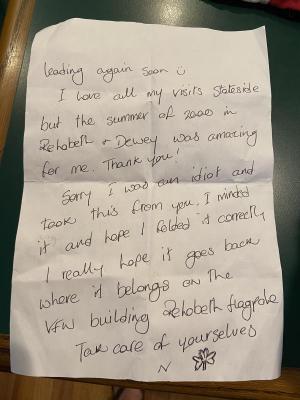 leading again soon ☺
I love all my visits stateside
but the summer of 2000 in
Rehobeth + Dewey was amazing
for me. Thank you!
Sorry I was an idiot and
took this from you. I minded
it and hope I folded it correctly
I really hope it goes back
where it belongs on the
VFW building Rehobeth flagpole
Take care of yourselves
N